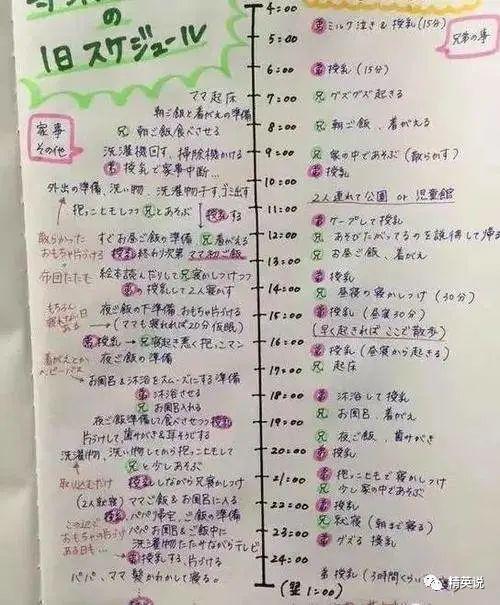 の
1日スケジュール
兄弟の事
家事
その他
4:00
5:00
弟 ミルク泣き & 授乳(15分)
6:00
弟 授乳(15分)
ママ起床
7:00
兄 グズグズ起きる
朝ご飯と着がえの準備
兄 朝ご飯食べさせる
8:00
兄 朝ご飯、着がえる
洗濯機回す、掃除機かける
9:00
兄 家の中であそぶ(散らかす)
弟 授乳で家事中断…
弟 授乳
外出の準備、洗い物、洗濯物干す、ゴミ出す
10:00
2人連れて公園 or 児童館
抱っこもしつつ兄とあそぶ
授乳する
11:00
弟 ケープして授乳
散らかった
おもちゃ片づける
すぐお昼ご飯の準備
兄 着がえる
12:00
兄 あそびたがってるのを説得して帰
授乳 終わり次第 ママ朝ご飯
兄 お昼ご飯、着がえ
13:00
絵本読んだりして兄寝かしつけつつ
弟の授乳して2人寝かす
弟 授乳
14:00
兄 昼寝の寝かしつけ(30分)
夜ご飯の下準備 おもちゃ片づける
(ママも寝れれば20分仮眠)
15:00
弟 授乳(昼寝30分)
(早く起きればここで散歩)
弟 授乳 → 兄 寝起き悪く抱っこマン
16:00
弟 授乳(昼寝から起きる)
着がえとか
ベビーバス
夜ご飯の準備
17:00
兄 起床
お風呂&沐浴をスムーズにする準備
弟 沐浴させる
18:00
弟 沐浴して授乳
兄 お風呂入れる
兄 お風呂、着がえ
夜ご飯準備して食べさせつつ授乳
19:00
片づけして、歯みがき&耳そうじする
兄 夜ご飯、歯みがき
洗濯物、洗い物してから抱っこもして
20:00
弟 授乳
兄と少しあそぶ
弟 抱っこもで寝かしつけ
取り込むだけ
授乳しながら兄寝かしつけ
21:00
兄 少し家の中であそぶ
(2人就寝) ママご飯&お風呂に入る
弟 授乳
22:00
授乳 パパ帰宅、ご飯の準備
兄 就寝(朝まで寝る)
おもちゃの片づけ
ある日も…
パパお風呂&ご飯中に
23:00
弟 グズる 授乳
洗濯物たたみながらテレビ
弟 授乳する、片づける
24:00
弟 授乳(3時間くらい
パパ、ママ
て寝る。
(翌1:00)
精英说